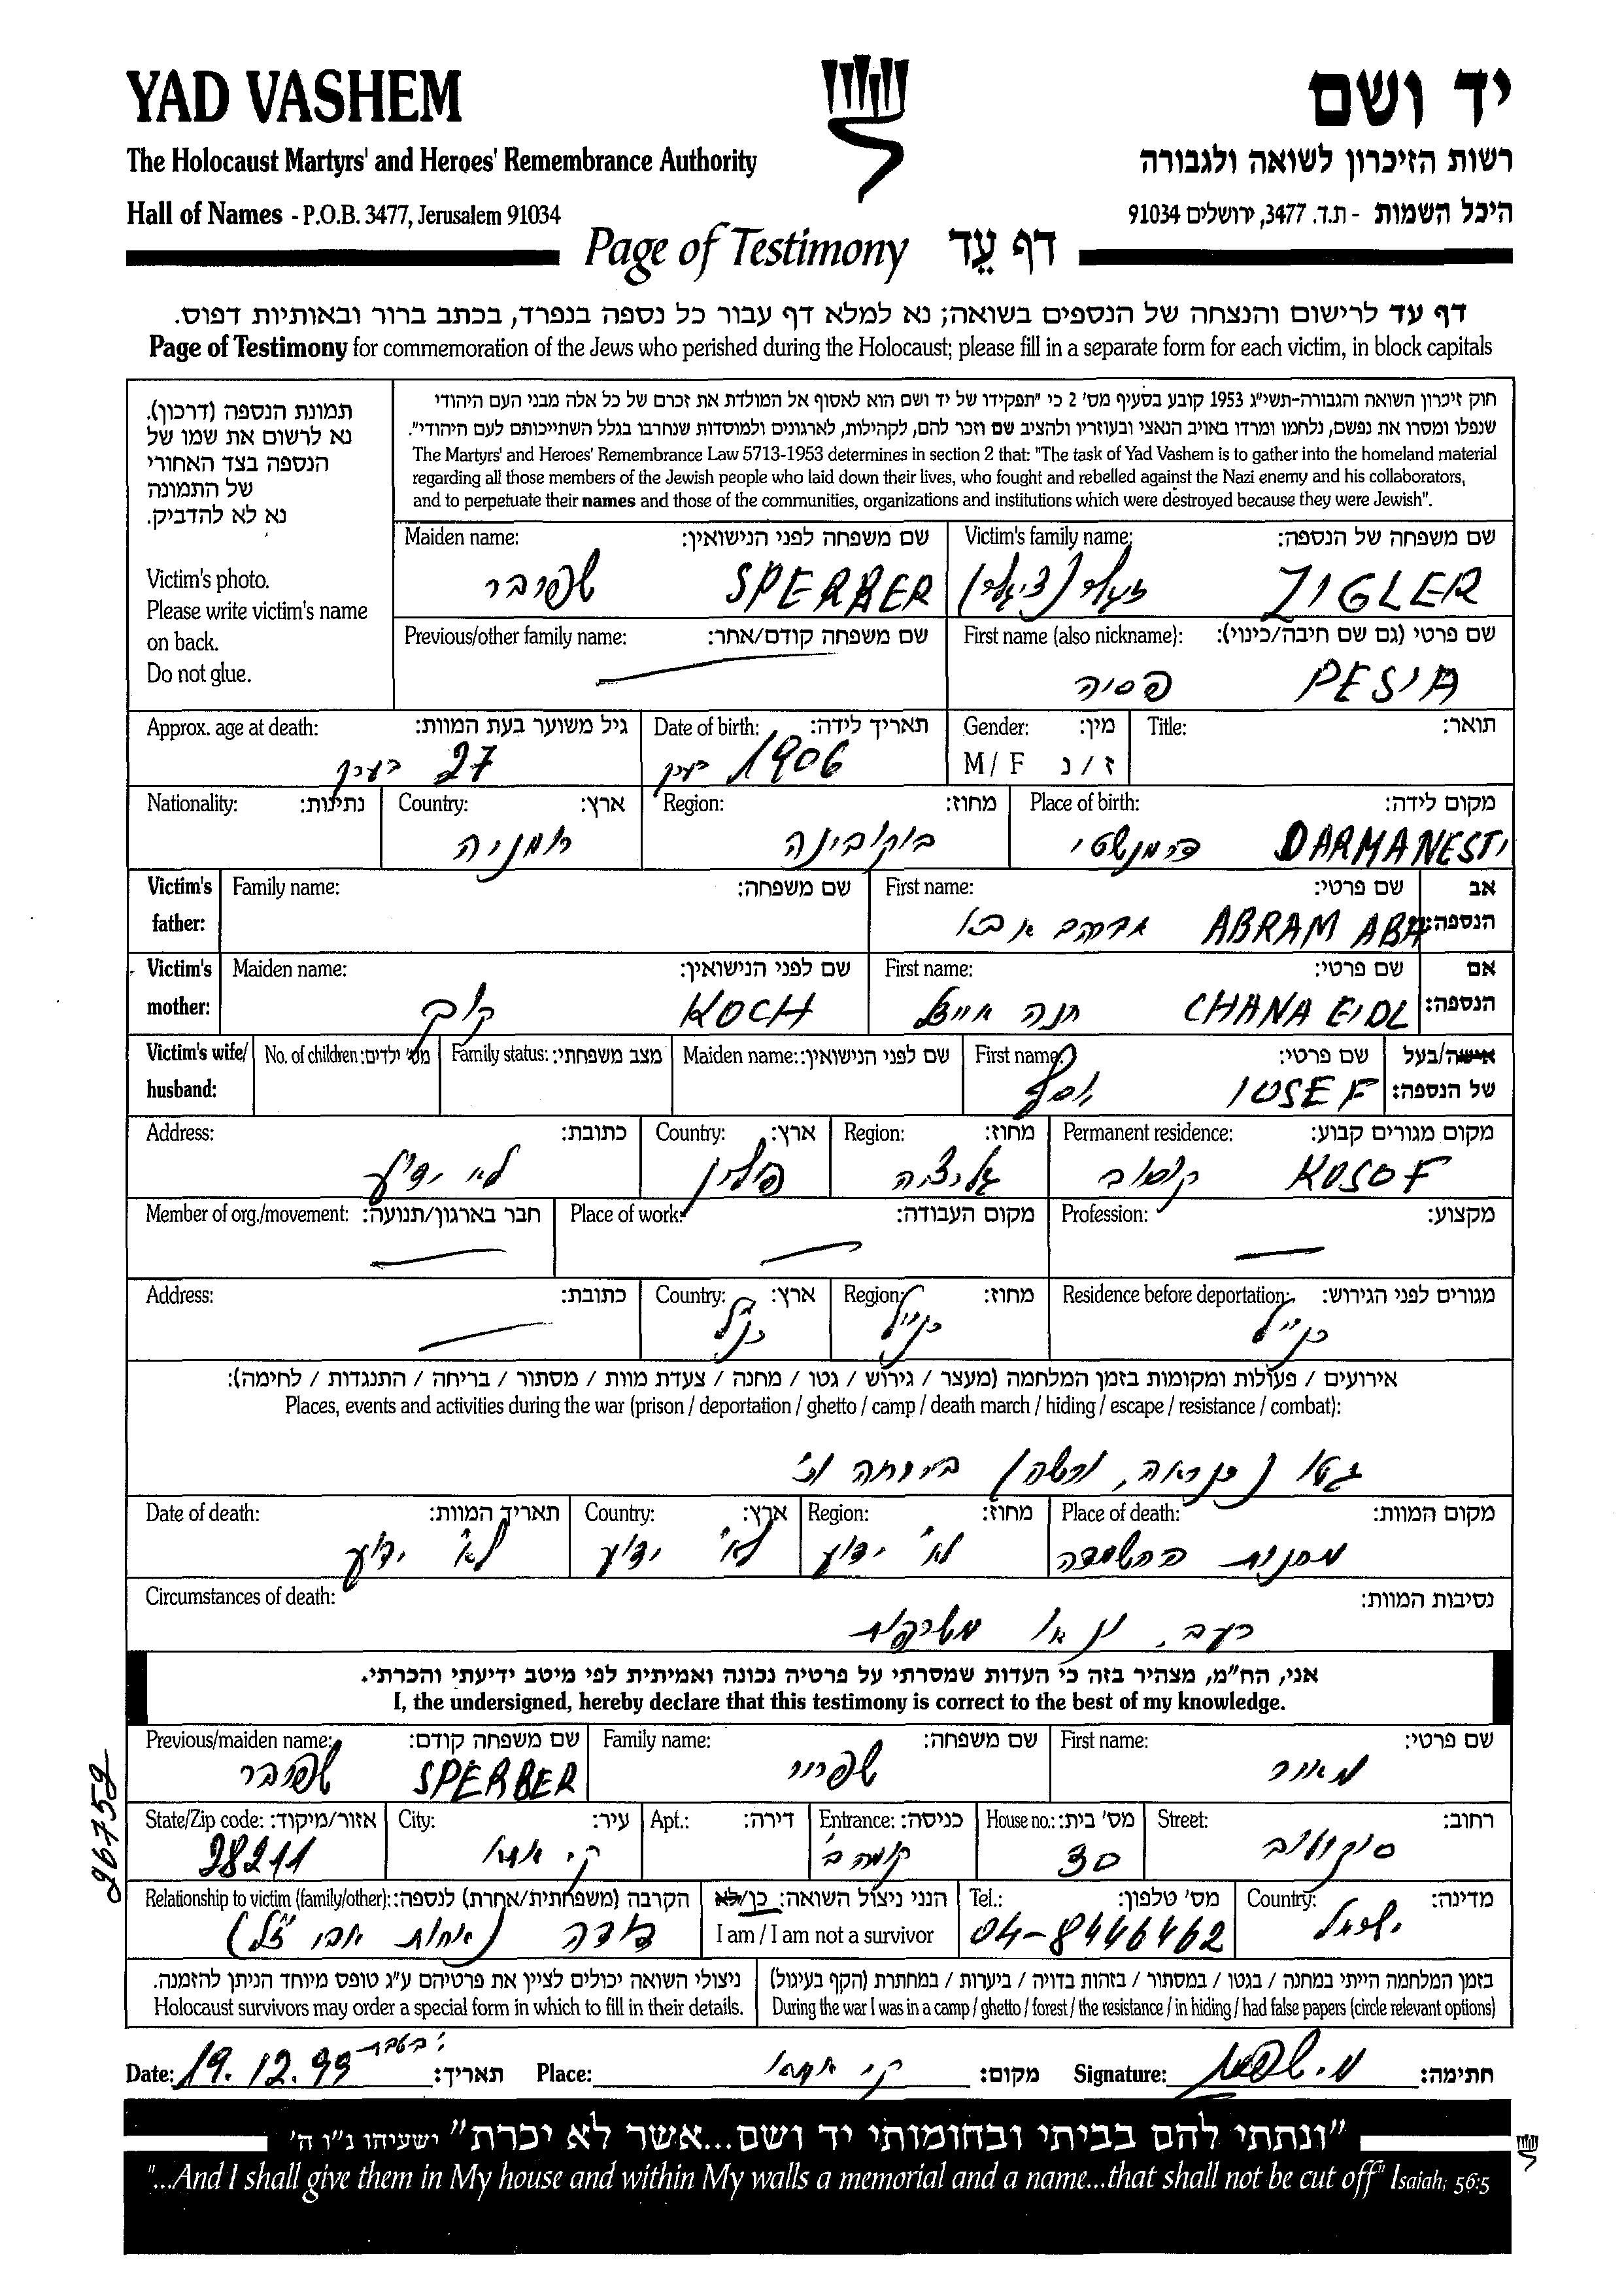 YAD VASHEM
יד ושם
The Holocaust Martyrs' and Heroes' Remembrance Authority
רשות הזיכרון לשואה ולגבורה
Hall of Names - P.O.B. 3477, Jerusalem 91034
היכל השמות - ת.ד. 3477, ירושלים 91034
Page of Testimony דף עֵד
דף עד לרישום והנצחה של הנספים בשואה; נא למלא דף עבור כל נספה בנפרד, בכתב ברור ובאותיות דפוס.
Page of Testimony for commemoration of the Jews who perished during the Holocaust; please fill in a separate form for each victim, in block capitals
תמונת הנספה (דרכון).
נא לרשום את שמו של
הנספה בצד האחורי
של התמונה
נא לא להדביק.
Victim's photo.
Please write victim's name
on back.
Do not glue.
חוק זיכרון השואה והגבורה-תשי"ג 1953 קובע בסעיף מס' 2 כי "תפקידו של יד ושם הוא לאסוף אל המולדת את זכרם של כל אלה מבני העם היהודי
שנפלו ומסרו את נפשם, נלחמו ומרדו באויב הנאצי ובעוזריו ולהציב שם וזכר להם, לקהילות, לארגונים ולמוסדות שנחרבו בגלל השתייכותם לעם היהודי".
The Martyrs' and Heroes' Remembrance Law 5713-1953 determines in section 2 that: "The task of Yad Vashem is to gather into the homeland material
regarding all those members of the Jewish people who laid down their lives, who fought and rebelled against the Nazi enemy and his collaborators,
and to perpetuate their names and those of the communities, organizations and institutions which were destroyed because they were Jewish".
Maiden name: שם משפחה לפני הנישואין:
שפרבר SPERBER
Victim's family name: שם משפחה של הנספה:
ZIGLER
Previous/other family name: שם משפחה קודם/אחר:
First name (also nickname): שם פרטי (גם שם חיבה/כינוי):
פסיה PESIA
Approx. age at death: גיל משוער בעת המוות:
27 בערך
Date of birth: תאריך לידה:
1906 בערך
Gender: מין:
M / F ז / נ
Title: תואר:
Nationality: נתינות:
Country: ארץ:
רומניה
Region: מחוז:
בוקובינה
Place of birth: מקום לידה:
דרמנשטי DARMANESTI
Victim's father: Family name: שם משפחה:
First name: שם פרטי: אב הנספה:
אברהם אבא ABRAM ABA
Victim's mother: Maiden name: שם לפני הנישואין:
קוך KOCH
First name: שם פרטי: אם הנספה:
חנה אייدל CHANA EIDL
Victim's wife/ husband:
No. of children: מס' ילדים:
Family status: מצב משפחתי:
Maiden name: שם לפני הנישואין:
First name: שם פרטי: אישה/בעל של הנספה:
יוסף IOSEF
Address: כתובת:
לא ידוע
Country: ארץ:
פולין
Region: מחוז:
גליציה
Permanent residence: מקום מגורים קבוע:
קוסוב KOSOF
Member of org./movement: חבר בארגון/תנועה:
Place of work: מקום העבודה:
Profession: מקצוע:
Address: כתובת:
Country: ארץ:
כנ"ל
Region: מחוז:
כנ"ל
Residence before deportation: מגורים לפני הגירוש:
כנ"ל
אירועים / פעולות ומקומות בזמן המלחמה (מעצר / גירוש / גטו / מחנה / צעדת מוות / מסתור / בריחה / התנגדות / לחימה):
Places, events and activities during the war (prison / deportation / ghetto / camp / death march / hiding / escape / resistance / combat):
גטו (כנראה, ורשה) בריחה וכ'
Date of death: תאריך המוות:
לא ידוע
Country: ארץ:
לא ידוע
Region: מחוז:
לא ידוע
Place of death: מקום המוות:
מחנות ההשמדה
Circumstances of death: נסיבות המוות:
רעב, או משרפות
אני, הח"מ, מצהיר בזה כי העדות שמסרתי על פרטיה נכונה ואמיתית לפי מיטב ידיעתי והכרתי.
I, the undersigned, hereby declare that this testimony is correct to the best of my knowledge.
Previous/maiden name: שם משפחה קודם:
שפרבר SPERBER
Family name: שם משפחה:
שפריר
First name: שם פרטי:
מאיר
State/Zip code: אזור/מיקוד:
28211
City: עיר:
ק. אתא
Apt.: דירה:
Entrance: כניסה:
קומה ב'
House no.: מס' בית:
30
Street: רחוב:
סוקולוב
Relationship to victim (family/other): הקרבה (משפחתית/אחרת) לנספה:
דודה (אחות אבי ז"ל)
הנני ניצול השואה: כן/לא
I am / I am not a survivor
Tel.: מס' טלפון:
04-8446462
Country: מדינה:
ישראל
ניצולי השואה יכולים לציין את פרטיהם ע"ג טופס מיוחד הניתן להזמנה.
Holocaust survivors may order a special form in which to fill in their details.
בזמן המלחמה הייתי במחנה / בגטו / במסתור / בזהות בדויה / ביערות / במחתרת (הקף בעיגול)
During the war I was in a camp / ghetto / forest / the resistance / in hiding / had false papers (circle relevant options)
Date: 19.12.99 תאריך: Place: ק. אתא מקום: Signature: חתימה:
267752
"ונתתי להם בביתי ובחומותי יד ושם...אשר לא יכרת" ישעיהו נ"ו ה'
"...And I shall give them in My house and within My walls a memorial and a name...that shall not be cut off" Isaiah; 56:5